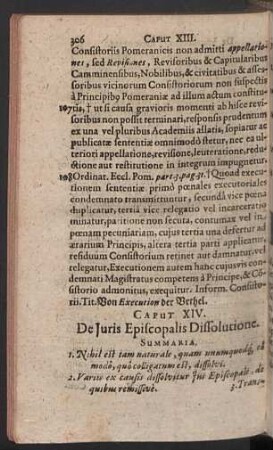 306 CAPUT XIII.
Consistoriis Pomeranicis non admitti appellatio-
nes, sed Revisiones, Revisoribus & Capitularibus
Camminensibus, Nobilibus, & civitatibus & asses-
soribus vicinorum Consistoriorum non suspectis
à Principibꝰ Pomeraniæ ad illum actum constitu-
107tis, † ut si causa gravioris momenti ab hisce revi-
soribus non possit terminari, responsis prudentum
ex una vel pluribus Academiis allatis, sopiatur ac
publicatæ sententiæ omnimodò stetur, nec ea ul-
teriori appellatione, revisione, leuteratione, redu-
ctione aut restitutione in integrum impugnetur.
108Ordinat. Eccl. Pom. part. 3. pag. 31. † Quoad execu-
tionem sententiæ primò pœnales executoriales
condemnato transmittuntur, secundâ vice pœna
duplicatur, tertiâ vice relegatio vel incarceratio
minatur, pœnitione non secuta, contumax vel in
pœnam pecuniariam, cujus tertia una defertur ad
ærarium Principis, altera tertia parti applicatur,
residuum Consistorium retinet aut damnatur, vel
relegatur, Executionem autem hanc cujusvis con-
demnati Magistratus competens à Principe & Co-
sistorio admonitus, exequitur. Inform. Consisto-
rii. Tit. Von Execution der Urthel.
CAPUT XIV.
De Juris Episcopalis Dissolutione.
SUMMARIA.
1. Nihil est tam naturale, quam unumquodq́; eo
modò, quô colligatum est, dissolvi.
2. Variis ex causis dissolvitur Jus Episcopale, de
quibus remissivè.